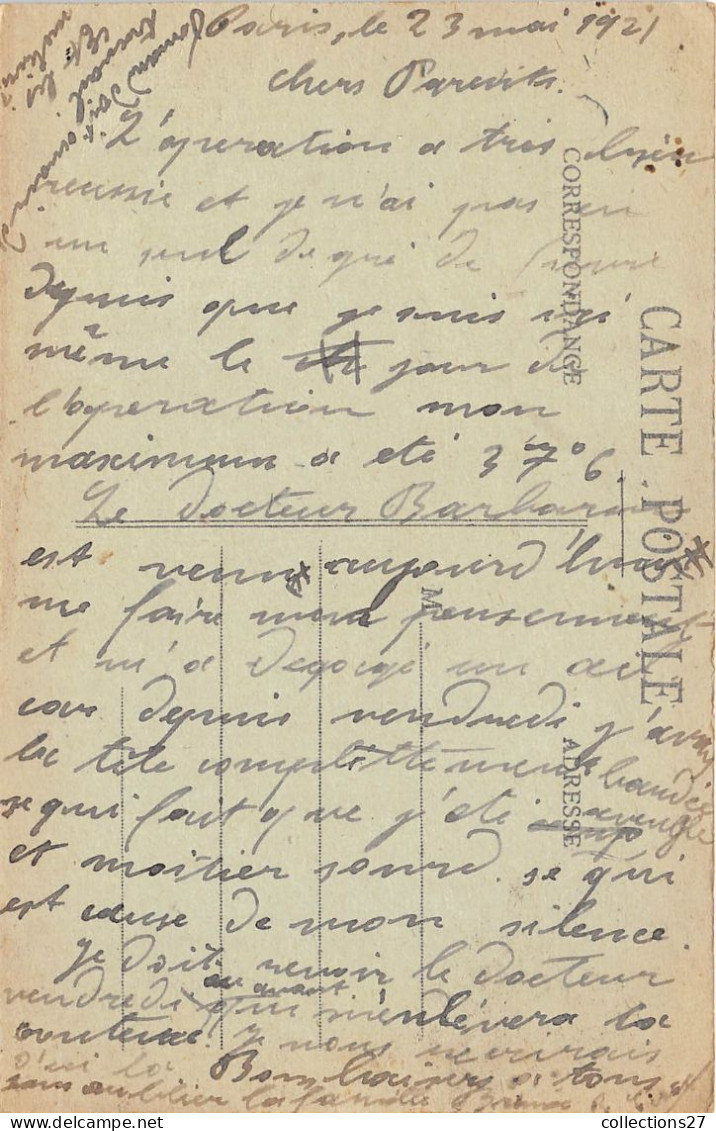 Paris, le 23 mai 1921
chers Parents.
L'operation a tres bien
reussie et je n'ai pas eu
un seul degré de fievre
depuis que je suis ici
même le jour de
l'operation mon
maximum a eté 37°6.
Le docteur Barbarin
est venu aujourd'hui
me faire mon pensement
et m'a degagé un oeil
car depuis vendredi j'avais
la tête complettement bandée
se qui fait que j'eté aveugle
et moitier sourd. se qui
est cause de mon silence.
je doit revoir le docteur
vendredi ou avant
qui m'enlévera la
couture. je vous recrirais
d'ici la Bons baisers a tous
sans oublier la famille
CARTE POSTALE
CORRESPONDANCE
ADRESSE
M
collections27